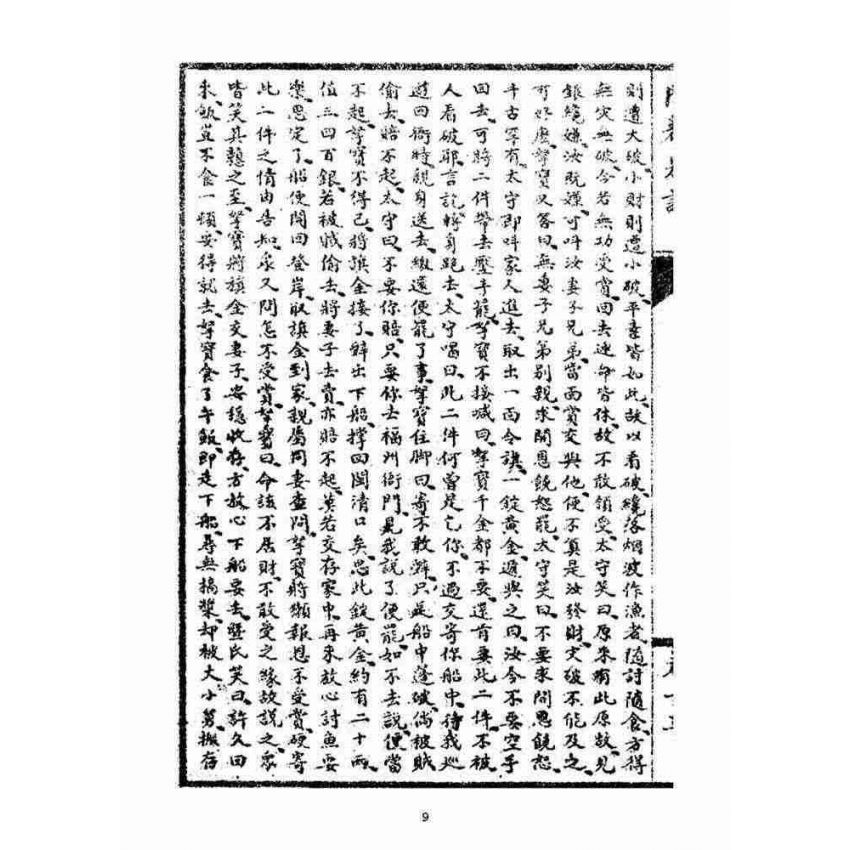 則遭大破、小財則遭小破、平素皆如此、故以看破、纔落烟波作漁者、隨討隨食、方得
無災無破、今若無功受賞、回去連命皆休、故不敢領受、太守笑曰、原來有此原故、見
銀纔嫌、汝既嫌、可叫汝妻子兄弟當面賞交與他、便不算是汝發財、災破不能及之、
可好麼、拏寶又答曰、無妻子兄弟別親、求開恩饒恕罷、太守笑曰、不要求開恩饒恕、
千古罕有、太守即叫家人進去、取出一面令旗、一錠黃金、遞與之曰、汝今不要空手
回去、可將二件帶去壓手罷、拏寶不接、喊曰、拏寶千金都不要、還肯要此二件、不被
人看破耶、言訖、轉身跑去、太守喝曰、此二件何曾是乞你、不過交寄你船中、待我巡
遊回衙時、親身送去、繳還便罷了事、拏寶住脚曰、寄不敢辭、只是船中蓬破、倘被賊
偷去、賠不起、太守曰、不要你賠、只要你去福州衙門、見我說了、便罷、如不去說、便當
不起、拏寶不得已、將旗金接了、辭出下船、撐回閩清口矣、思此錠黃金、約有二十兩、
值三四百銀、若被賊偷去、將妻子去賣、亦賠不起、莫若交存家中、再來放心討魚、要
樂、思定了、船便開回、登岸、取旗金到家、親屬同妻查問、拏寶將獺報恩不受賞、硬寄
此二件之情由告知、衆又問怎不受賞、拏寶曰、命該不居財、不敢受之緣故說之、衆
皆笑其戇之至、拏寶將旗金交妻子、安穩收存、方放心下船、要去、　氏笑曰、許久回
來、飯豈不食一頓、安得就去、拏寶食了午飯、即走下船、尋無搞槳、却被大小舅搬存
9